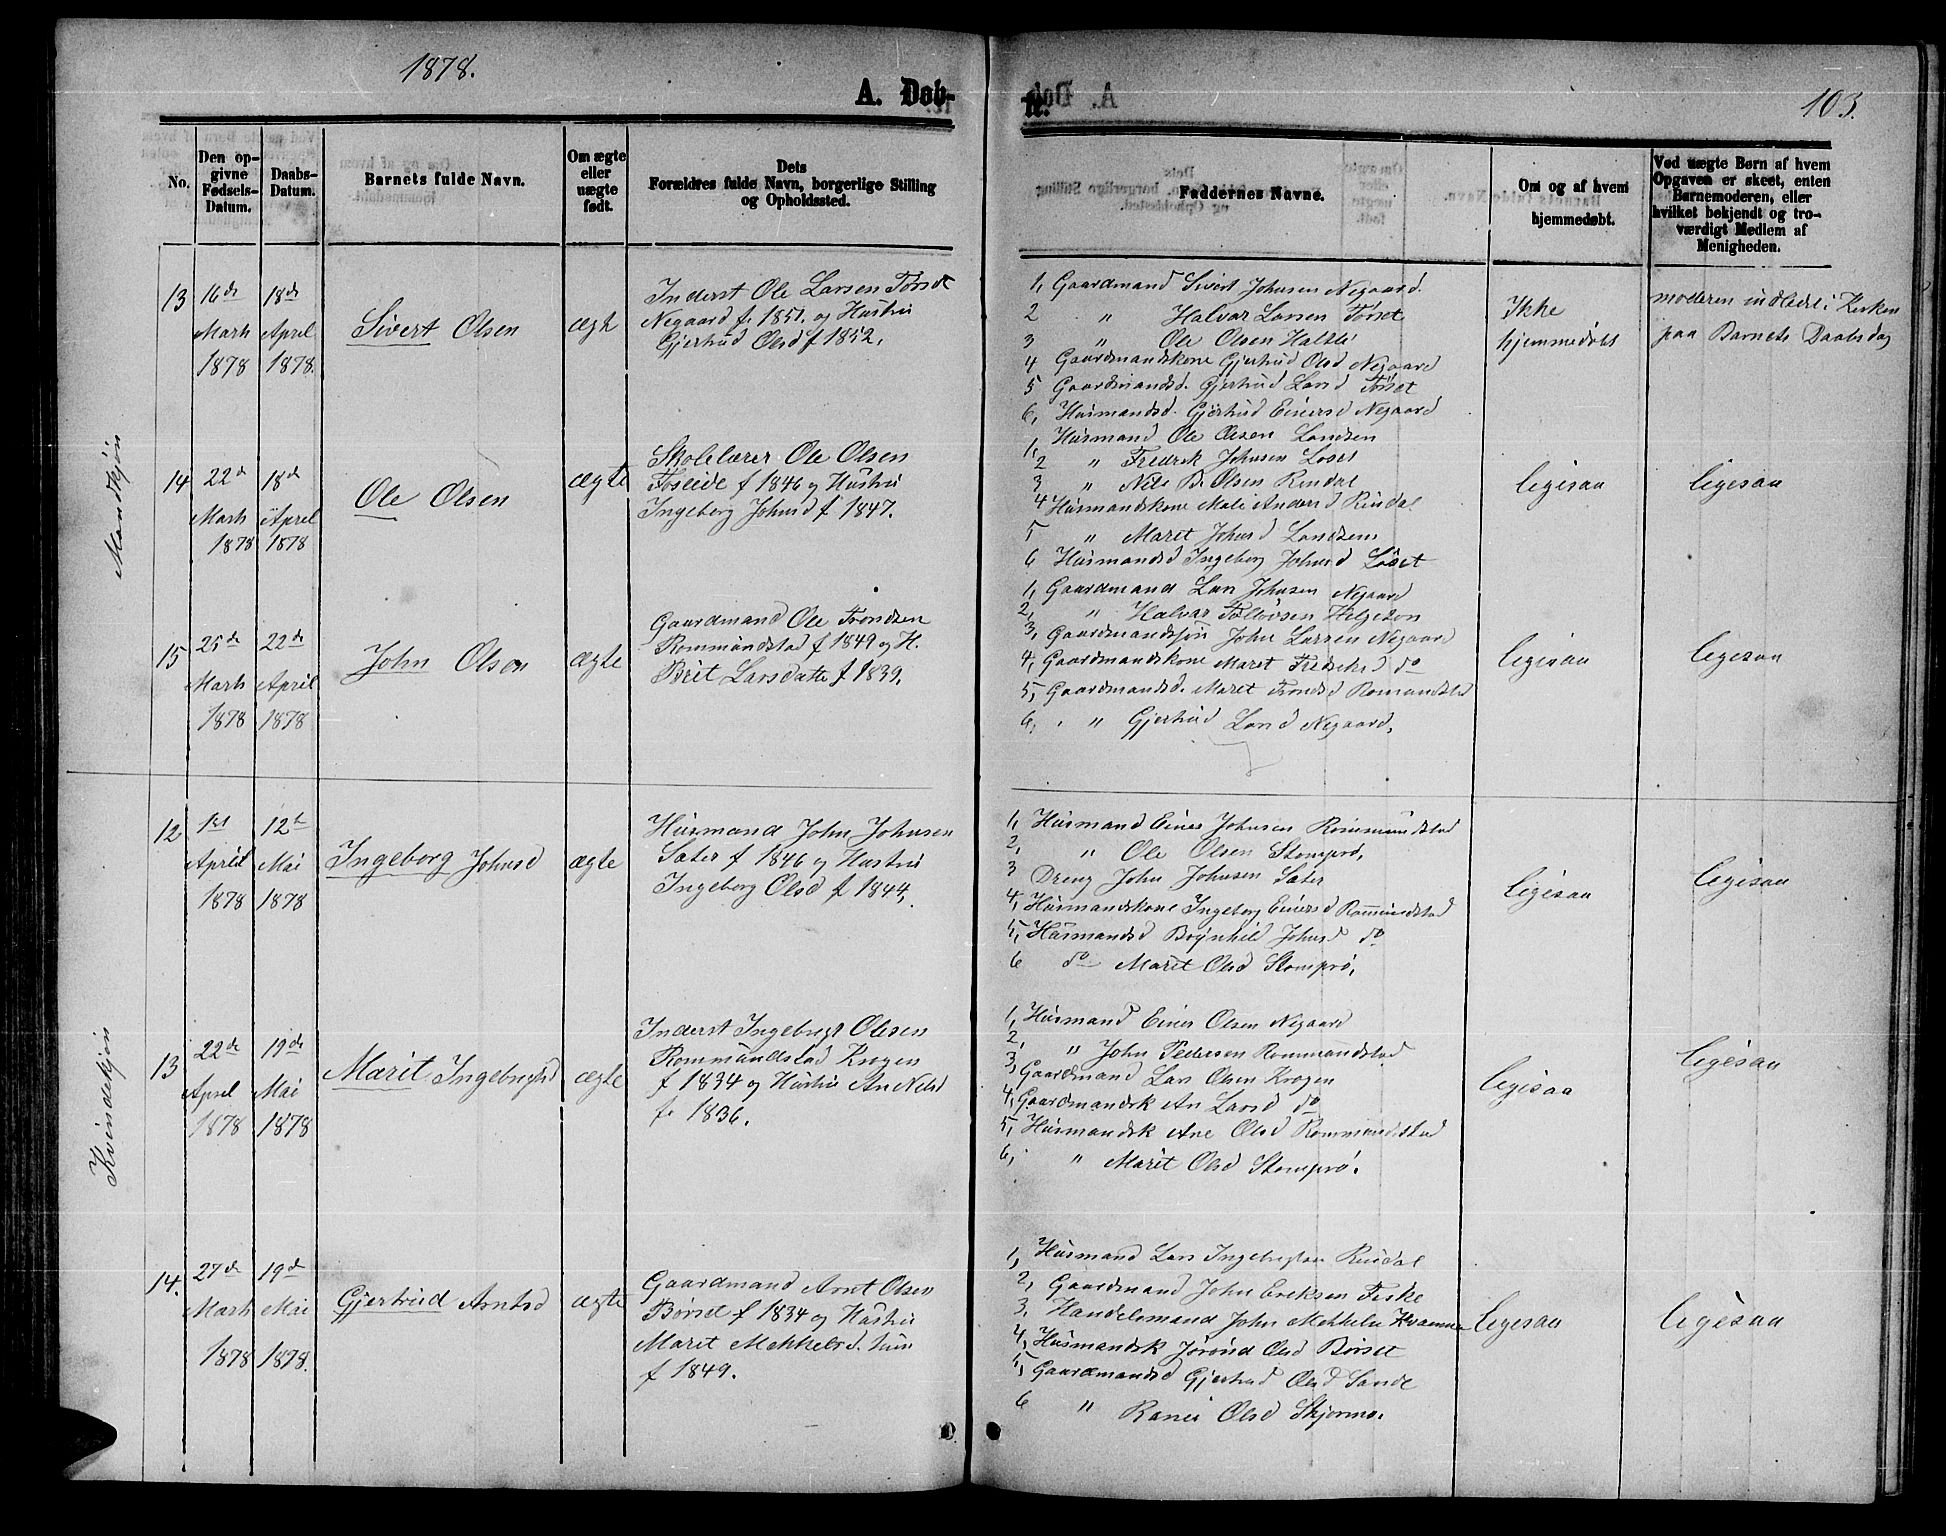 1878.
A. Døb-
te.
103.
No.
Den op-
givne
Fødsels-
Datum.
Daabs-
Datum.
Barnets fulde Navn.
Om ægte
eller
uægte
født.
Dets
Forældres fulde Navn, borgerlige Stilling
og Opholdssted.
Faddernes Navne.
Om og af hvem
hjemmedøbt.
Ved uægte Børn af hvem
Opgaven er skeet, enten
Barnemoderen, eller
hvilket bekjendt og tro-
værdigt Medlem af
Menigheden.
Mandkjøn
13
16de
Marh
1878
18de
April
1878.
Sivert Olsen
ægte
Inderst Ole Larsen Forset
Negaard f. 1851. og Hustrü
Gjertrud Olsd f 1852.
1, Gaardmand Sivert Johnsen Negaard.
2 " Halvar Larsen Forset
3 " Ole Olsen Haltli
4 Gaardmandskone Gjertrud Olsd Negaard
5 Gaardmandsd. Gjertrud Larsd Forset
6, Husmandsd. Gjertrud Einersd Negaard
Ikke
hjemmedøbt
moderen indledt i Kirken
paa Barnets Daabsdag
14
22de
Marh
1878
18de
April
1878
Ole Olsen
ægte
Skolelærer Ole Olsen
Foseide f 1846 og Hustrü
Ingeborg Johnsd f 1847.
1, Husmand Ole Olsen
2 " Fredrik Johnsen Løset
3 " Nils B. Olsen Rindal
4 Husmandskone Mali Andersd Rindal
5 " Maret Johnsd
6 Husmandsd Ingeborg Johnsd Løset
ligesaa
ligesaa
15
25de
Marh
1878
22de
April
1878
John Olsen
ægte
Gaardmand Ole Trondsen
Rommundstad f 1849 og H.
Brit Larsdatte f 1839.
1, Gaardmand Lars Johnsen Negaard
2, " Halvar Helgeton
3, Gaardmandssøn John Larsen Negaard
4, Gaardmandskone Maret Frediksd do
5, Gaardmandsd. Maret Trondsd Romundstd
6, " Gjertrud Larsd Negaard.
ligesaa
ligesaa
Kvindekjøn
12
1ste
April
1878
12te
Mai
1878
Ingeborg Johnsd
ægte
Husmand John Johnsen
Sæter f 1846 og Hustrü
Ingeborg Olsd f 1844.
1, Husmand Einer Johnsen Rommundstad
2, " Ole Olsen Stomprø,
3 Dreng John Johnsen Sæter
4, Husmandskone Ingeborg Einersd Rommundstad
5, Husmandsd Brynhild Johnsd do
6 do Marit Olsd Stomprø.
ligesaa
ligesaa
13
22de
April
1878
19de
Mai
1878
Marit Ingebrigtsd
ægte
Inderst Ingebrigt Olsen
Rommundstad Krogen
f 1834 og Hustru An Nilsd
f. 1836.
1, Husmand Einer Olsen Negaard
2, " John Pedersen Rommundstad
3, Gaardmand Lars Olsen Krogen
4, Gaardmandsk An Larsd do
5, Husmandsk Ane Olsd Rommundstad
6, " Marit Olsd Stomprø.
ligesaa
ligesaa
14.
27de
Marh
1878
19de
Mai
1878.
Gjertrud Arntsd
ægte
Gaardmand Arnt Olsen
Børset f 1834 og Hustru
Maret Mekkelsd. hun
f 1849.
1, Husmand Lars Ingebrigtsen Rindal
2, Gaardmand John Eriksen Fiske
3, Handelsmand John Mekkelsen Kvamme
4, Husmandsk Jørønd Olsd Børset
5 Gaardmandsd Gjertrud Olsd Sande
6 " Ranei Olsd Skjermo.
ligesaa
ligesaa